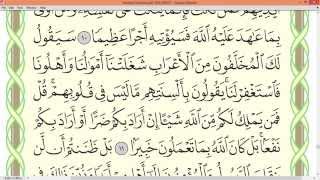 بِمَا عَٰهَدَ عَلَيْهُ ٱللَّهَ فَسَيُؤْتِيهِ أَجْرًا عَظِيمًا ١٠ سَيَقُولُ
لَكَ ٱلْمُخَلَّفُونَ مِنَ ٱلْأَعْرَابِ شَغَلَتْنَآ أَمْوَٰلُنَا وَأَهْلُونَا
فَٱسْتَغْفِرْ لَنَا ۚ يَقُولُونَ بِأَلْسِنَتِهِم مَّا لَيْسَ فِى قُلُوبِهِمْ ۚ قُلْ
فَمَن يَمْلِكُ لَكُم مِّنَ ٱللَّهِ شَيْـًٔا إِنْ أَرَادَ بِكُمْ ضَرًّا أَوْ أَرَادَ بِكُمْ
نَفْعًۢا ۚ بَلْ كَانَ ٱللَّهُ بِمَا تَعْمَلُونَ خَبِيرًۢا ١١ بَلْ ظَنَنتُمْ أَن لَّن